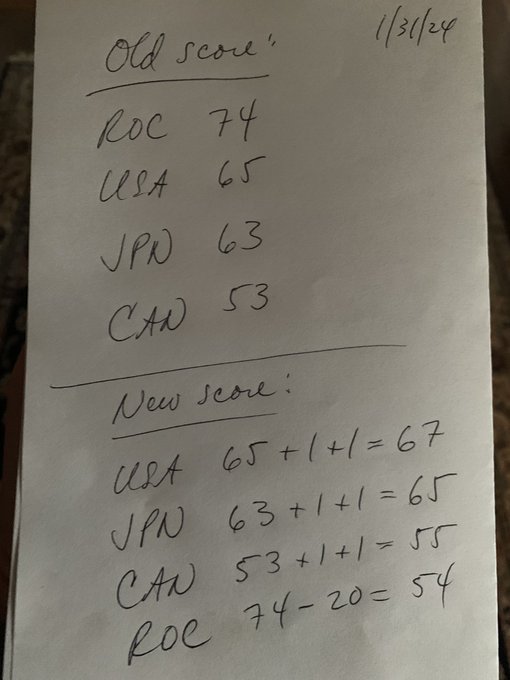 1/31/24
Old score:
ROC 74
USA 65
JPN 63
CAN 53
New score:
USA 65+1+1=67
JPN 63+1+1=65
CAN 53+1+1=55
ROC 74-20=54